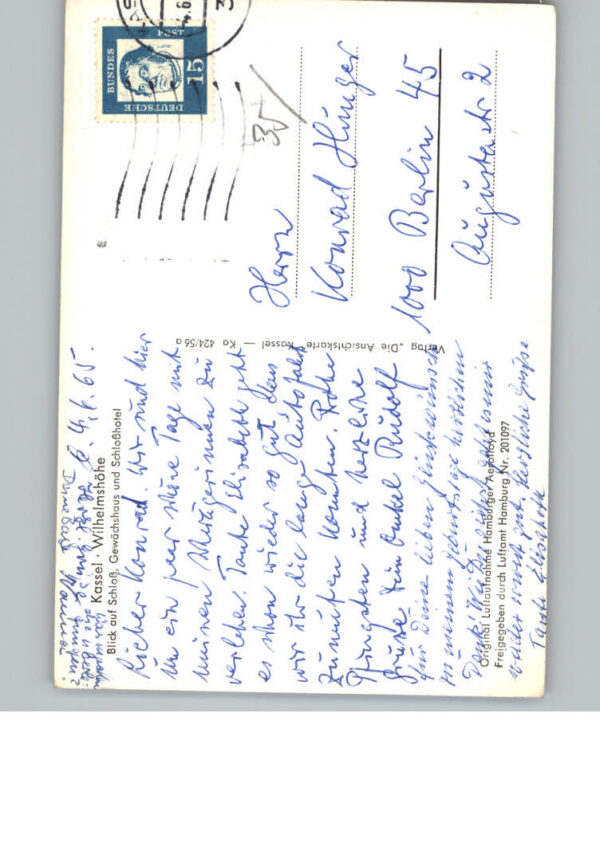 Kassel · Wilhelmshöhe
Blick auf Schloß, Gewächshaus und Schloßhotel
4.6.65.
Lieber Konrad. Wir sind hier
um ein paar schöne Tage mit
meinen Schwägerinnen zu
verleben. Tante Elisabeth geht
es schon wieder so gut dass
wir ihr die lange Autofahrt
zumuten konnten. Frohe
Pfingsten und herzliche
Grüße Dein Onkel Rudolf
für Deine lieben Glückwünsche
zu meinem Geburtstage herzlichen
Dank!
wieder recht gut. Herzliche Grüße
Tante Elisabeth
Herzl. Grüße
Original Luftaufnahme Hamburger Aerolloyd
Freigegeben durch Luftamt Hamburg Nr. 201097
Verlag „Die Ansichtskarte" Kassel — Ka 424/56a
DEUTSCHE
BUNDES
POST
15
35
Herrn
Konrad Hünger
1000 Berlin 45
Augustastr 2